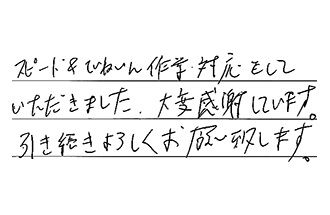 スピード&ていねいな作業・対応をして
いただきました、大変感謝しています。
引き続きよろしくお願い致します。